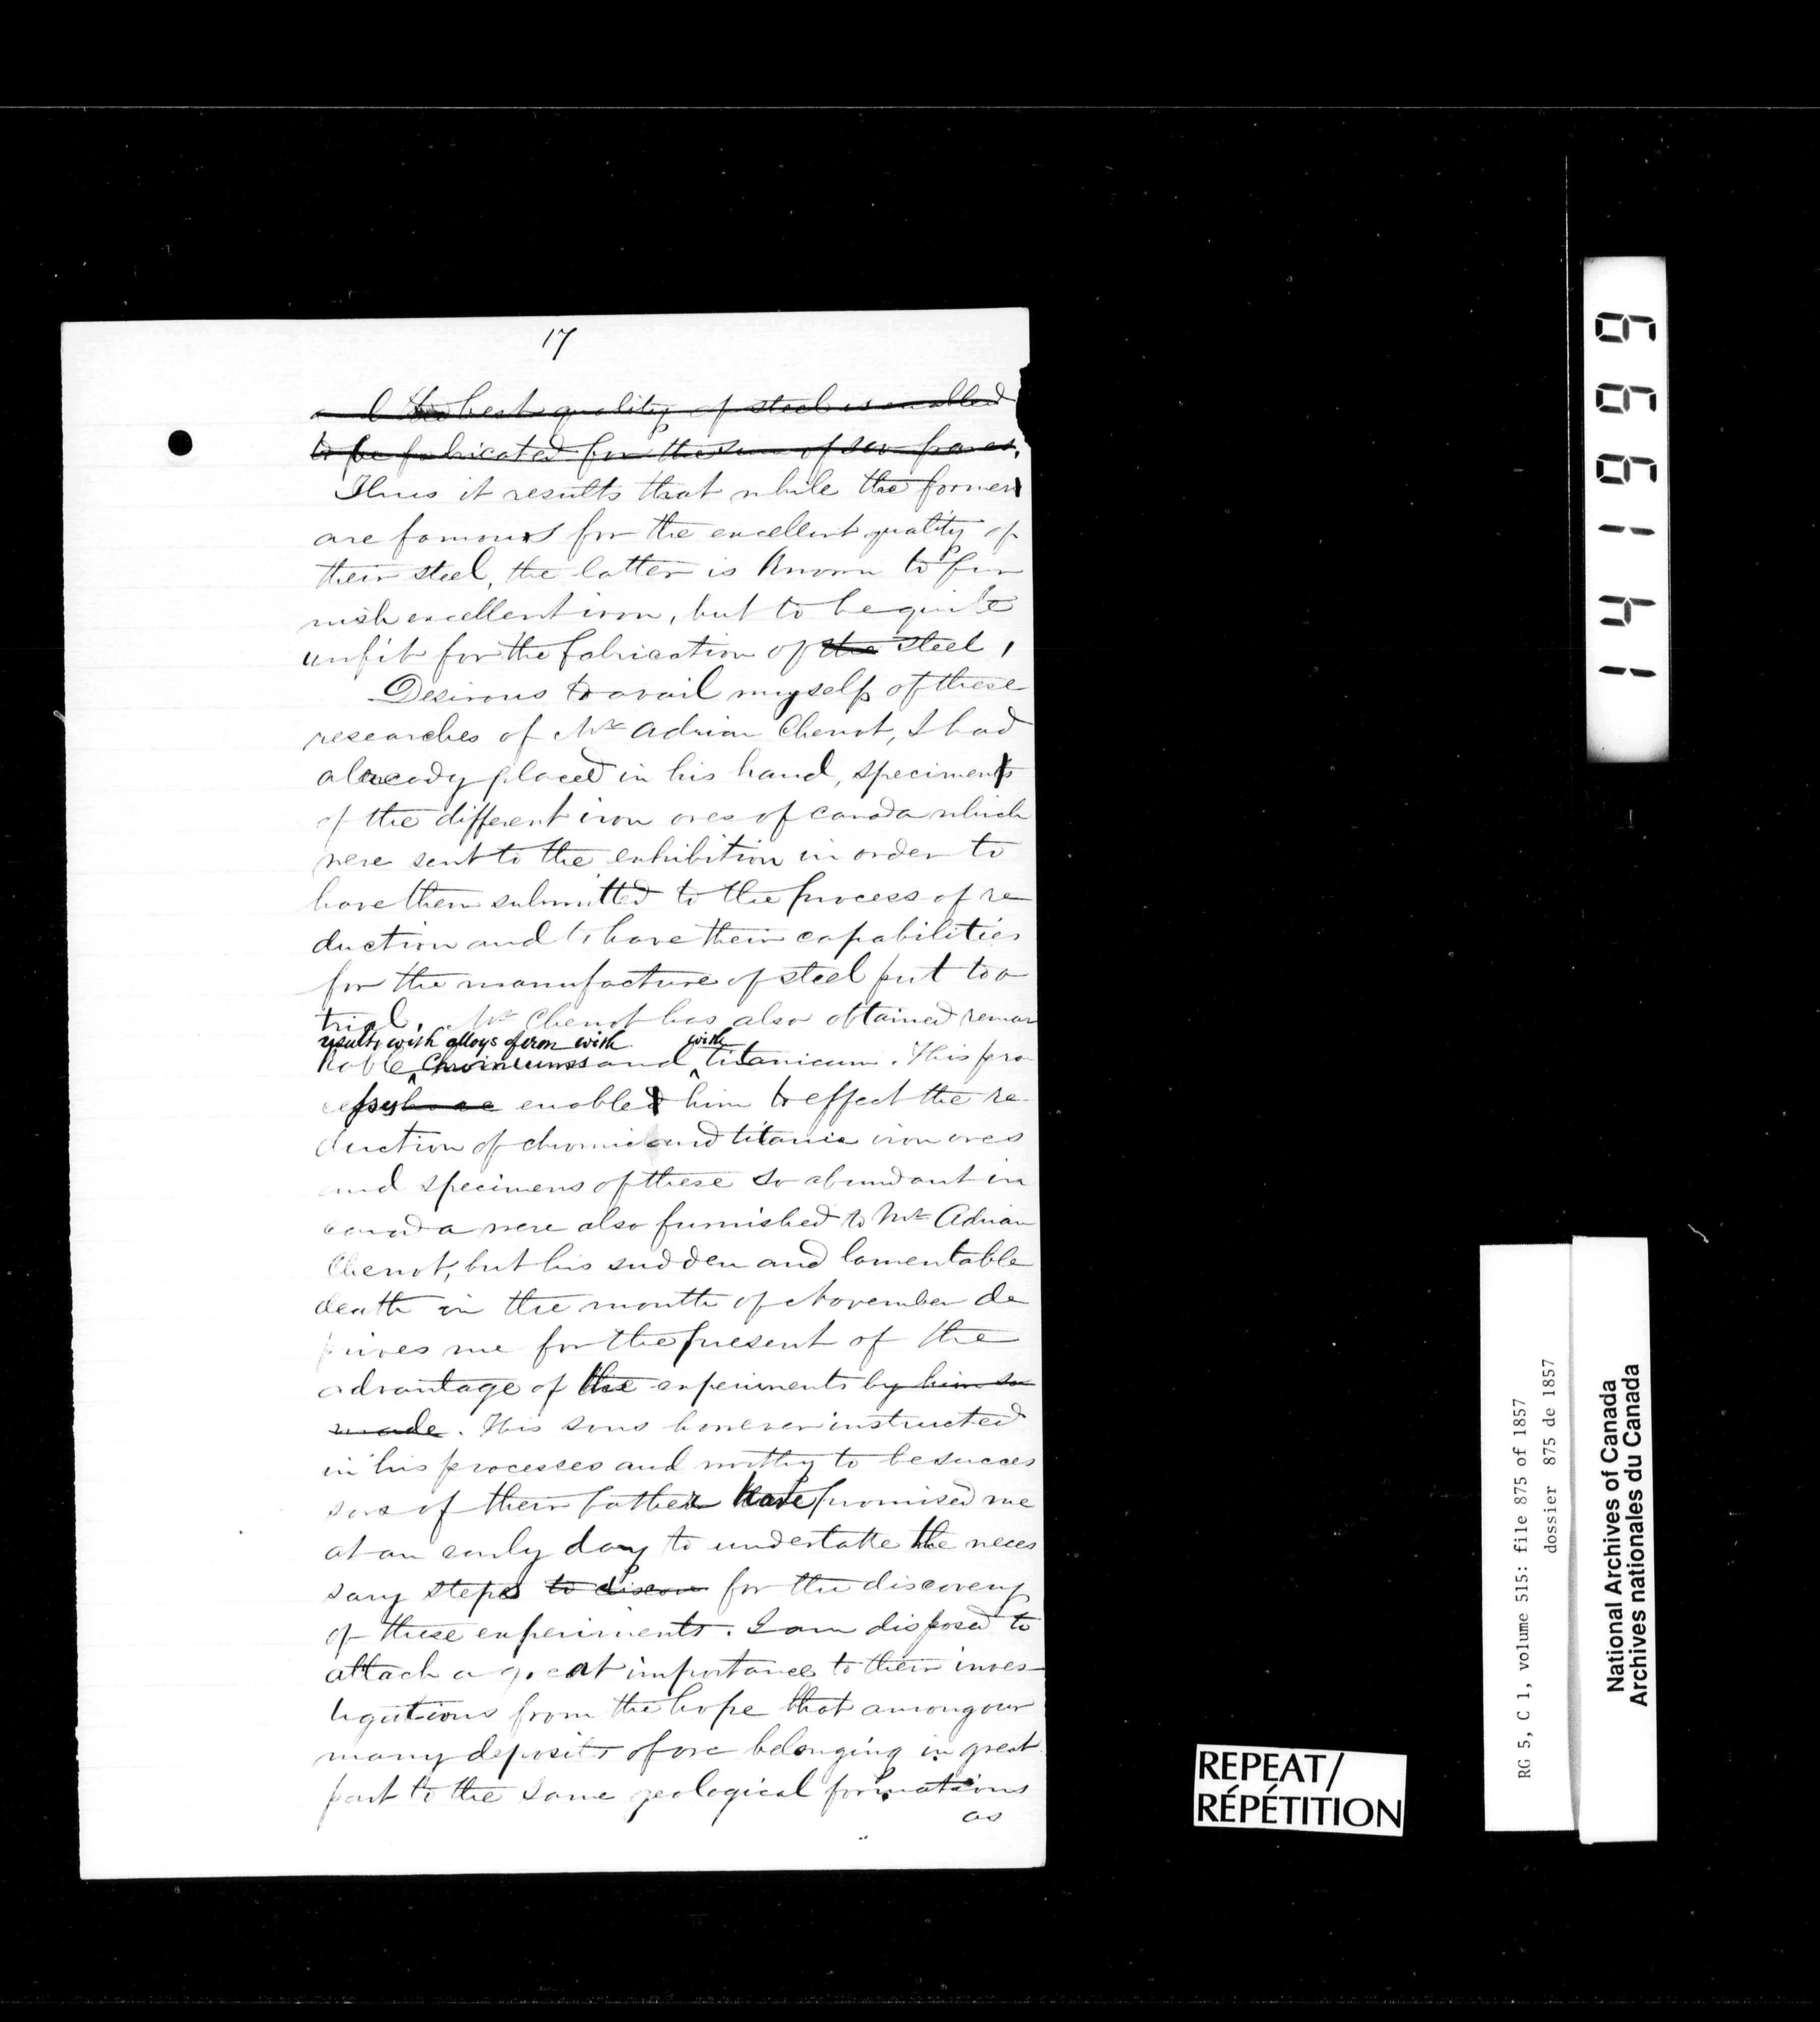 17
the best quality of steel is enabled
to be fabricated for the sum of francs.
Thus it results that while the former
are famous for the excellent quality of
their steel, the latter is known to fur
nish excellent iron, but to be quite
unfit for the fabrication of the steel,
Desirous to avail myself of these
researches of Mr Adrian Chenot, I had
already placed in his hand, specimens
of the different iron ores of canada which
were sent to the exhibition in order to
have them submitted to the process of re
duction and to have their capabilities
for the manufacture of steel put to a
trial, Mr Chenot has also obtained remar
results with alloys of iron with with
kable and titanicum. This pro
cess enabled him to effect the re-
duction of chromic and titanic iron ores
and specimens of these so abundant in
canada were also furnished to Mr Adrian
Chenot, but his sudden and lamentable
death in the month of November de
prives me for the present of the
advantage of the experiments by him so
made. His sons however instructed
in his processes and worthy to be succes
sors of their father have promised me
at an early day to undertake the neces
sary steps to discov for the discovery
of these experiments. I am disposed to
attach a great importance to their inves-
tigations from the hope that among our
many deposits of ore belonging in great
part to the same geological formations
as
REPEAT/
RÉPÉTITION
141999
RG 5, C 1, volume 515: file 875 of 1857
dossier 875 de 1857
National Archives of Canada
Archives nationales du Canada